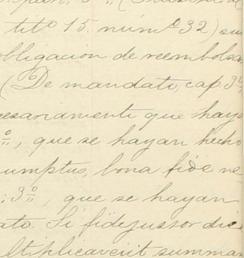 titº 15. núm.º 32) su
obligacion de reembolsa
(De mandato, cap. 3º
esariamente que haya
º, que se hayan hecho
umptus, bona fide ne
; 3º, que se hayan
ato. Si fidejussor du
ltiplicaverit summa